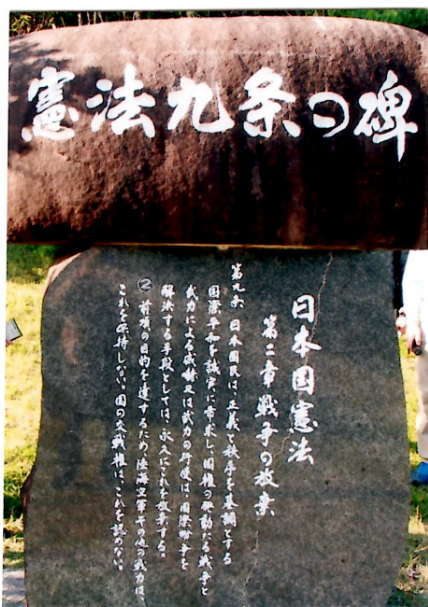 憲法九条の碑
日本国憲法
第二章 戦争の放棄
第九条 日本国民は、正義と秩序を基調とする
国際平和を誠実に希求し、国権の発動たる戦争と
武力による威嚇又は武力の行使は、国際紛争を
解決する手段としては、永久にこれを放棄する。
② 前項の目的を達するため、陸海空軍その他の戦力は、
これを保持しない。国の交戦権は、これを認めない。